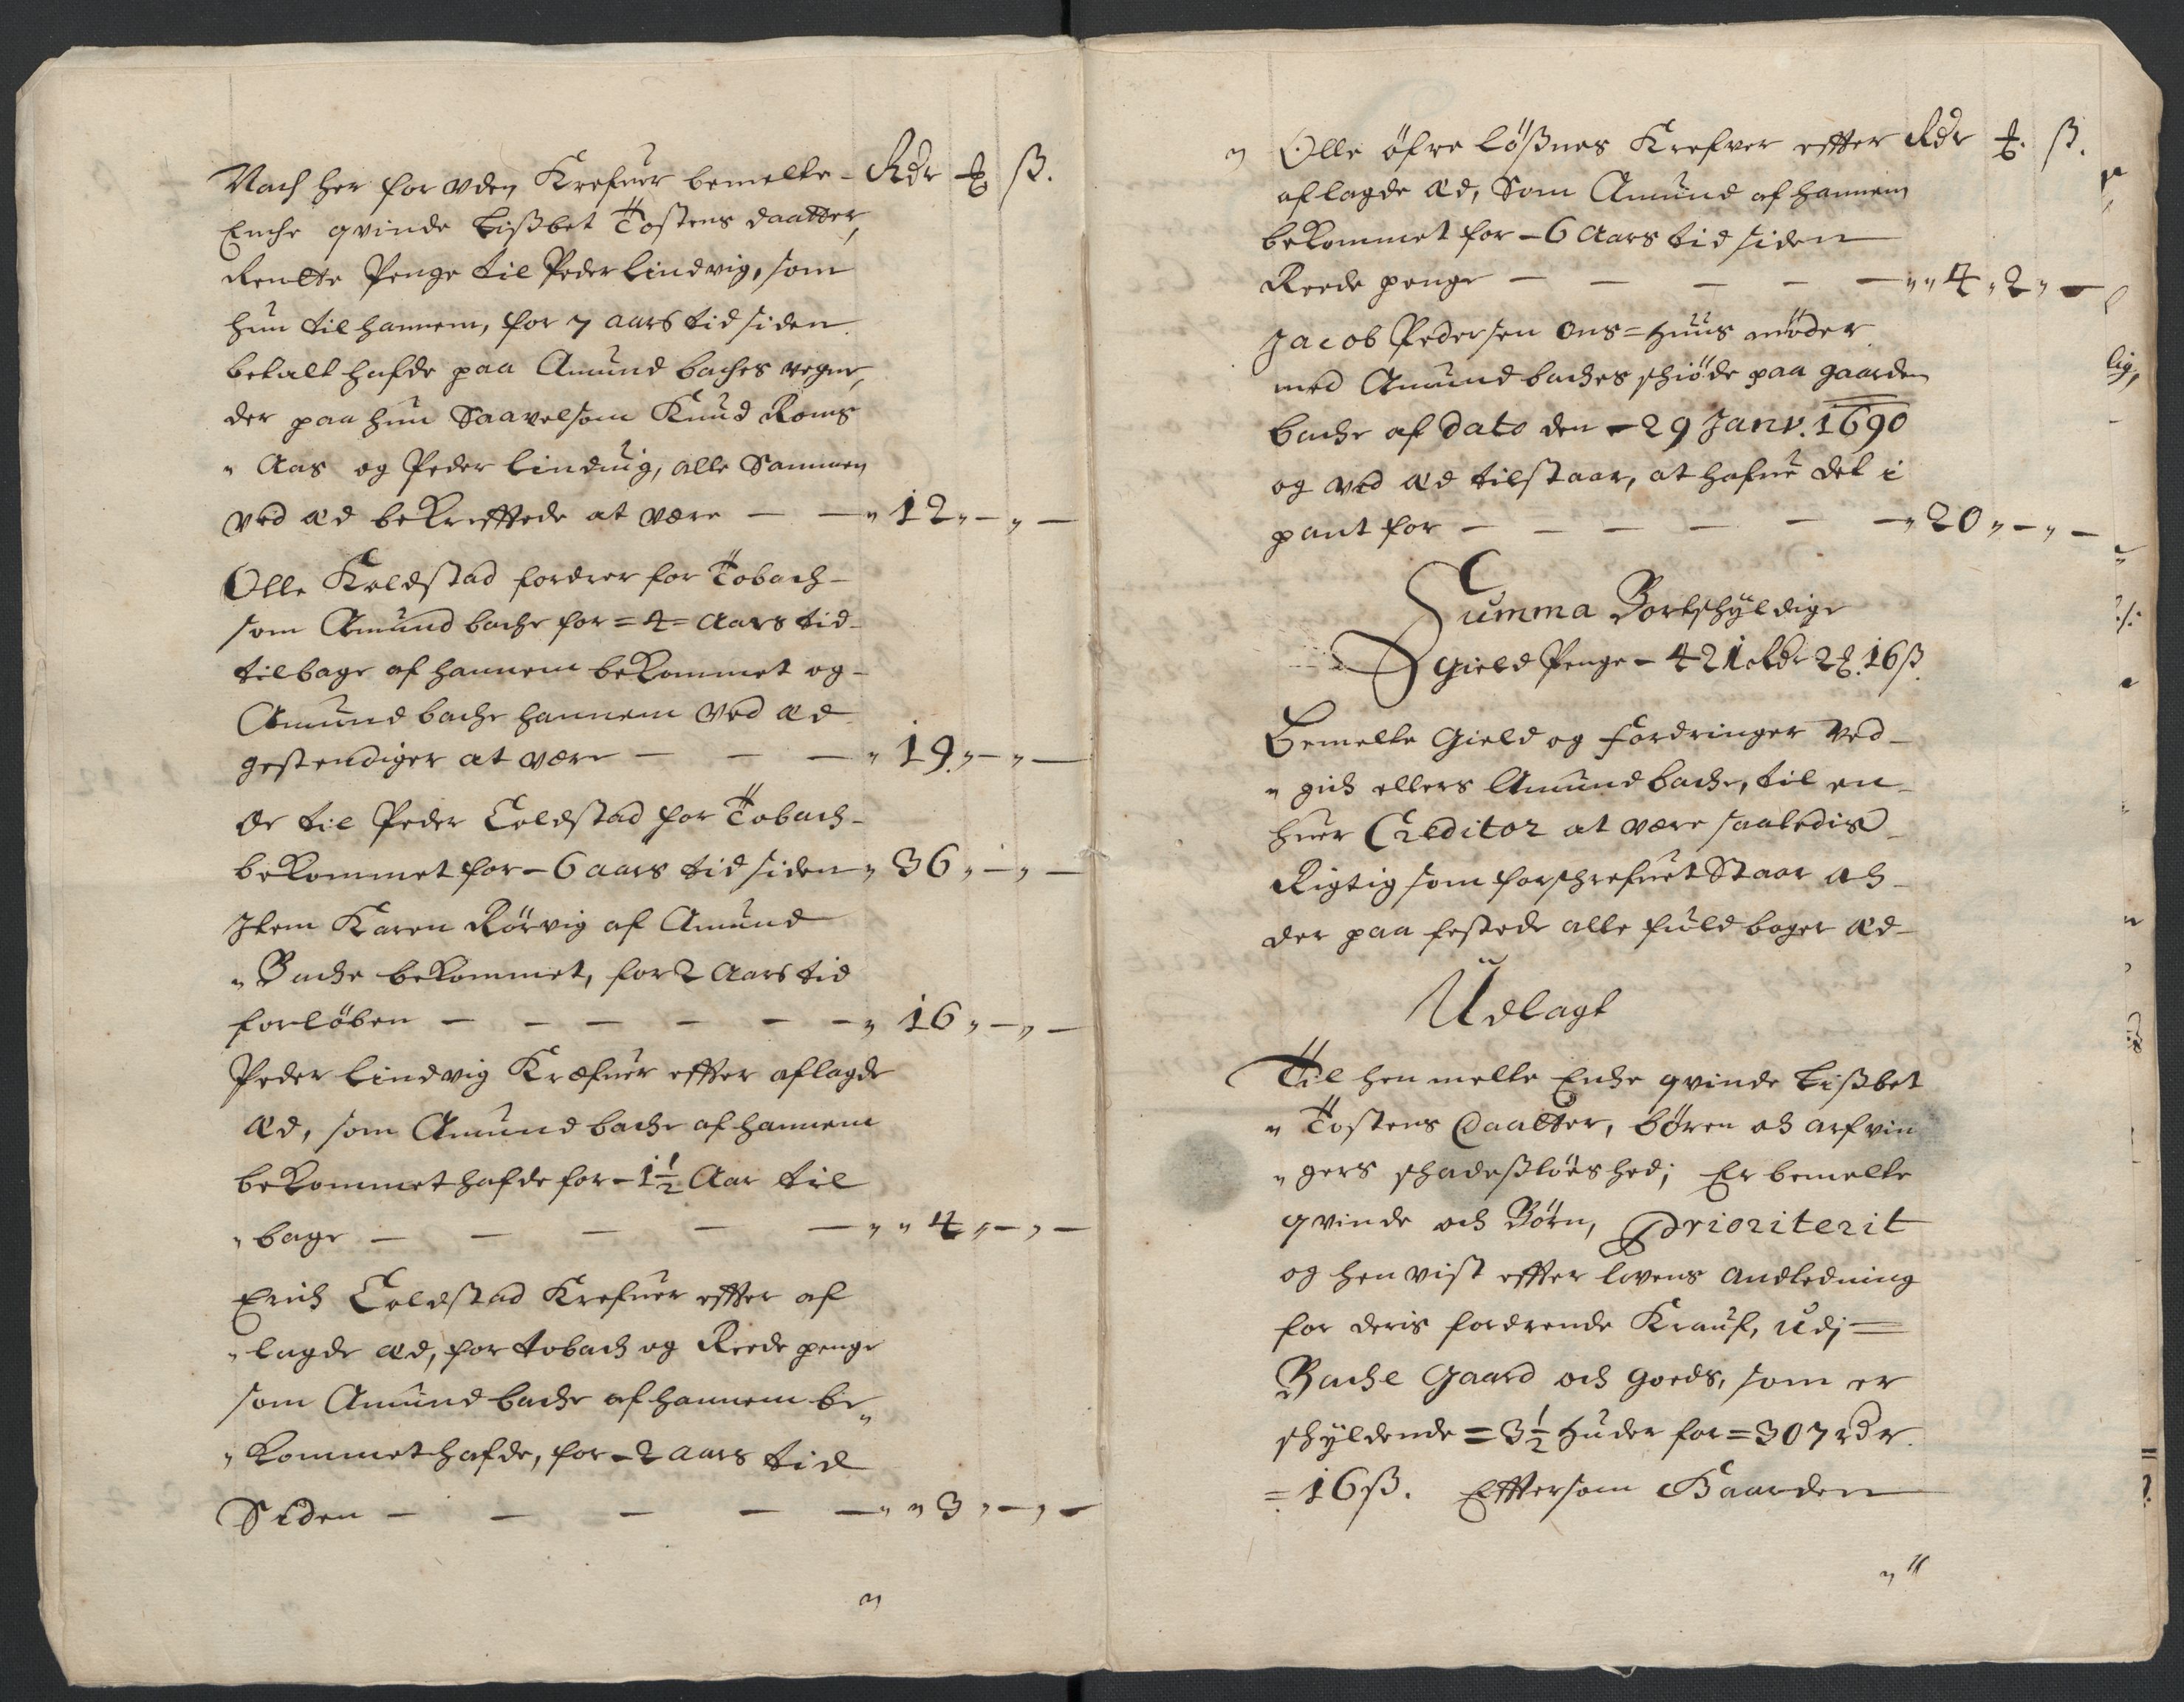 Noch her for uden Krefuer bemelte - Rdr ₰ ß.
Enche qvinde Lißbet Tostens daatter,
Rentte Penge til Peder Lindvig, som
hun til hannem, for 7 aars tid siden
betalt hafde paa Amund baches vegne,
der paa hun Saavelsom Knud Roms
„ Aas og Peder Lindvig, alle Sammen
ved æd bekrefftede at være — — „ 12 „ — „ —
Olle Koldstad fordrer for Tobach -
som Amund bache for = 4 = Aars tid -
tilbage af hannem bekommet og -
Amund bache hannem ved æd
gestendiger at være — — — „ 19. „ — „ —
Er til Peder Coldstad for Tobach -
bekommet for - 6 aars tid siden „ 36 „ — „ —
Item Karen Rörvig af Amund
„ Bache bekommet, for 2 Aars tid
forlöben — — — — — — „ 16 „ — „ —
Peder Lindvig Kræfuer effter aflagde
æd, som Amund bache af hannem
bekommet hafde for - 1½ Aar til
„ bage — — — — — „ „ 4 „ — „ —
Erich Coldstad Krefuer effter af
„ lagde æd, for tobach og Reede penge
som Amund bache af hannem be„
„ kommet hafde, for - 2 aars tid
Siden — — — — — „ „ 3 „ — „ —
„ Olle öfre Lößnes Krefver effter Rdr ₰. ß.
aflagde æd, Som Amund af hannem
bekommet for - 6 Aars tid siden
Reede penge — — — — — „ „ 4 „ 2 „ —
Jacob Pedersen Ons = Huus möder
med Amund baches schiöde paa gaarden
bache af Dato den - 29 Janv. 1690
og ved æd tilstaar, at hafue det i
pant for — — — — — — „ 20 „ — „ —
Summa Bortschyldige
Gield Penge - 421 Rdr 2 ₰. 16 ß.
Bemelte Gield og fordringer ved -
„ gich ellers Amund bache, til en -
huer Creditor at være saaledis
Rigtig som forschrefuet Staar och
der paa festede alle fuld boger æd -
Udlagt
Til hen melte Enche qvinde Lißbet
„ Tostens Daatter, Bören och arfvin
„ gers schadeßlöes hed; Er bemelte
qvinde och Börn, Prioriterit
og hen vist effter lovens andledning
for deris fordrende Krauf, udj =
Bache Gaard och goeds, som er
schyldende = 3½ Huder for = 307 rdr.
= 16 ß. Efftersom Gaarden